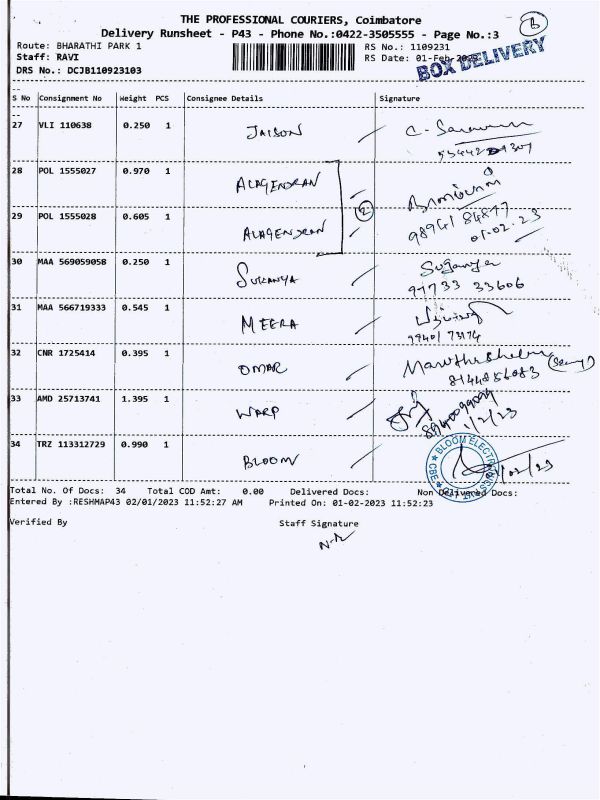 THE PROFESSIONAL COURIERS, Coimbatore
Delivery Runsheet - P43 - Phone No.:0422-3505555 - Page No.:3
Route: BHARATHI PARK 1 RS No.: 1109231
Staff: RAVI RS Date: 01-Feb-
DRS No.: DCJB110923103
BOX DELIVERY
S No Consignment No Weight PCS Consignee Details Signature
27 VLI 110638 0.250 1 JAISON C. Saravanan
28 POL 1555027 0.970 1 ALAGENDRAN
29 POL 1555028 0.605 1 ALAGENDRAN 2 98941 84877
01.02.23
30 MAA 569059058 0.250 1 SUKANYA Suganya
97733 33606
31 MAA 566719333 0.545 1 MEERA
99401 73174
32 CNR 1725414 0.395 1 OMAR
8144856083
33 AMD 25713741 1.395 1 WARP
1/2/23
34 TRZ 113312729 0.990 1 BLOOM BLOOM CBE
Total No. Of Docs: 34 Total COD Amt: 0.00 Delivered Docs: Non Delivered Docs:
Entered By :RESHMAP43 02/01/2023 11:52:27 AM Printed On: 01-02-2023 11:52:23
Verified By Staff Signature